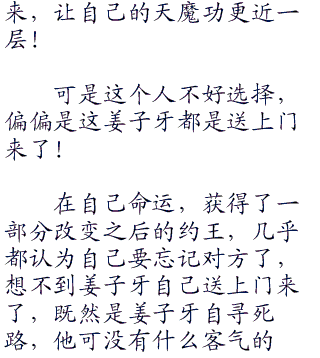 来，让自己的天魔功更近一
层！
可是这个人不好选择，
偏偏是这姜子牙都是送上门
来了！
在自己命运，获得了一
部分改变之后的约王，几乎
都认为自己要忘记对方了，
想不到姜子牙自己送上门来
了，既然是姜子牙自寻死
路，他可没有什么客气的